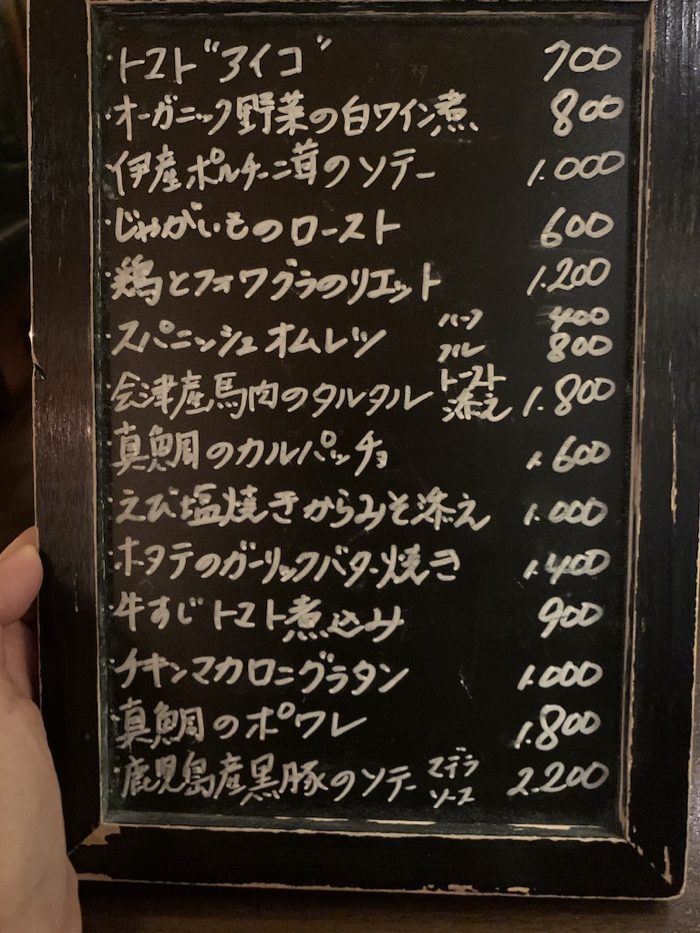 ・トマト"アイコ" 700
・オーガニック野菜の白ワイン煮 800
・伊産ポルチーニ茸のソテー 1.000
・じゃがいものロースト 600
・鶏とフォワグラのリエット 1.200
・スパニッシュオムレツ ハーフ 400
フル 800
・会津産馬肉のタルタル トースト添え 1.800
・真鯛のカルパッチョ 1.600
・えび塩焼きからみそ添え 1.000
・ホタテのガーリックバター焼き 1.400
・牛すじトマト煮込み 900
・チキンマカロニグラタン 1.000
・真鯛のポワレ 1.800
・鹿児島産黒豚のソテー マデラソース 2.200